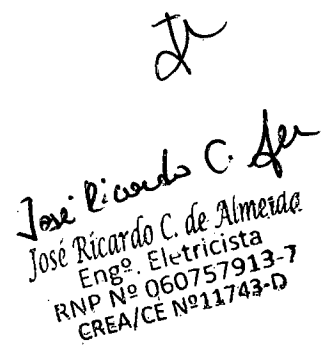 José Ricardo C.
José Ricardo C. de Almeida
Engº. Eletricista
RNP Nº 060757913-7
CREA/CE Nº11743-D